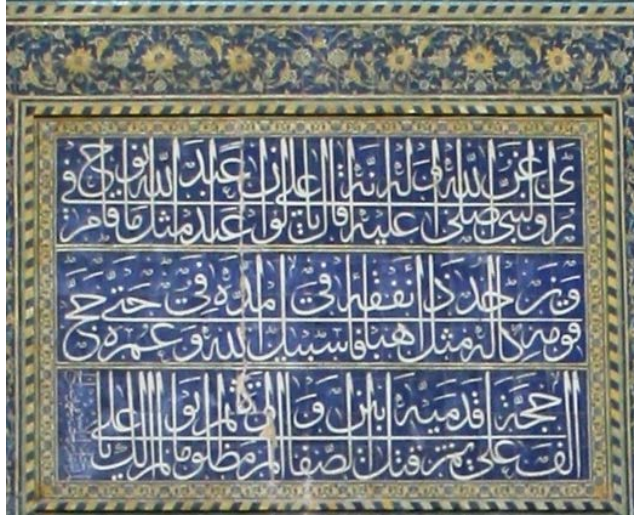 روی عن النبی صلی الله علیه و آله انه قال یا علی لو ان عبدا عبد الله مثل ما قام نوح فی
قومه و کان له مثل احد ذهبا فانفقه فی سبیل الله و مد فی عمره حتی حج
الف حجة علی قدمیه ثم قتل بین الصفا و المروة مظلوما ثم لم یوالک یا علی